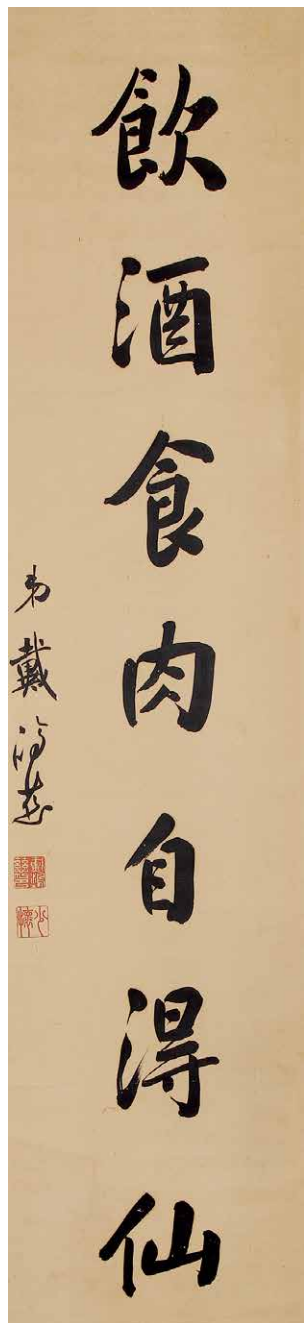 飲酒食肉自得仙
弟戴鴻慈